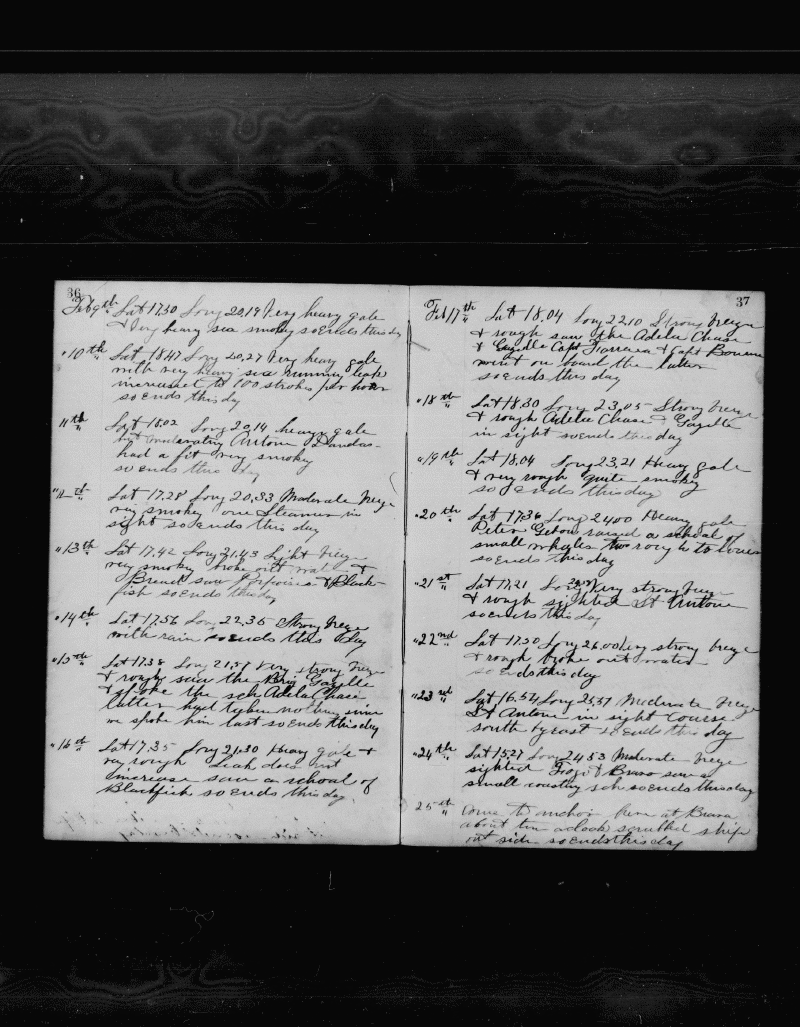 36
Feb 9th Lat 17,50 Long 20,19 Very heavy gale
& Very heavy sea smoky so Ends this day
" 10th Lat 18,47 Long 20,27 Very heavy gale
with very heavy sea running leak
increased to 100 strokes per hour
so Ends this day
11th Lat 18,02 Long 20,14 heavy gale
but moderating Antone Dandas
had a fit very smoky
so ends this day
" 12th Lat 17,28 Long 20,33 Moderate breze
very smoky one Steamer in
sight so ends this day
" 13th Lat 17,42 Long 21,43 Light breze
very smoky broke out water &
Bread saw porpoises & Black-
fish so ends this day
" 14th Lat 17,56 Long 22,35 Strong breze
with rain so ends this Day
" 15th Lat 17,38 Long 21,57 Very strong breze
& rough saw the Brig Gazelle
& spoke the sch Adelia Chase
latter had taken nothing since
we spoke him last so Ends this day
" 16th Lat 17,35 Long 21,30 Heavy gale &
very rough Leak does not
increase saw a school of
Blackfish so Ends this day
37
Feb 17th Lat 18,04 Long 22,10 Strong breze
& rough saw the Adelia Chase
& Gazelle Capt & Capt
went on board the latter
so ends this day
" 18th Lat 18,30 Long 23,05 Strong breze
& rough Adelia Chase & Gazelle
in sight so ends this day
" 19th Lat 18,04 Long 23,21 Heavy gale
& very rough quite smoky
so ends this day
" 20th Lat 17,36 Long 24,00 Heavy gale
Peter raised a school of
small whales too rough to lower
so ends this day
" 21st Lat 17,21 Long Very strong breze
& rough sighted St Antone
so ends this day
" 22nd Lat 17,50 Long 26,00 Very strong breze
& rough broke out water
so ends this day
" 23rd Lat 16,54 Long 25,37 Moderate breze
St Antone in sight Course
south by east so Ends this day
" 24th Lat 15,27 Long 24,53 Moderate breze
sighted Fogo & Bravo saw a
small coasting sch so ends this day
25th Come to anchor here at Brava
about ten oclock scrubed ship
out side so ends this day